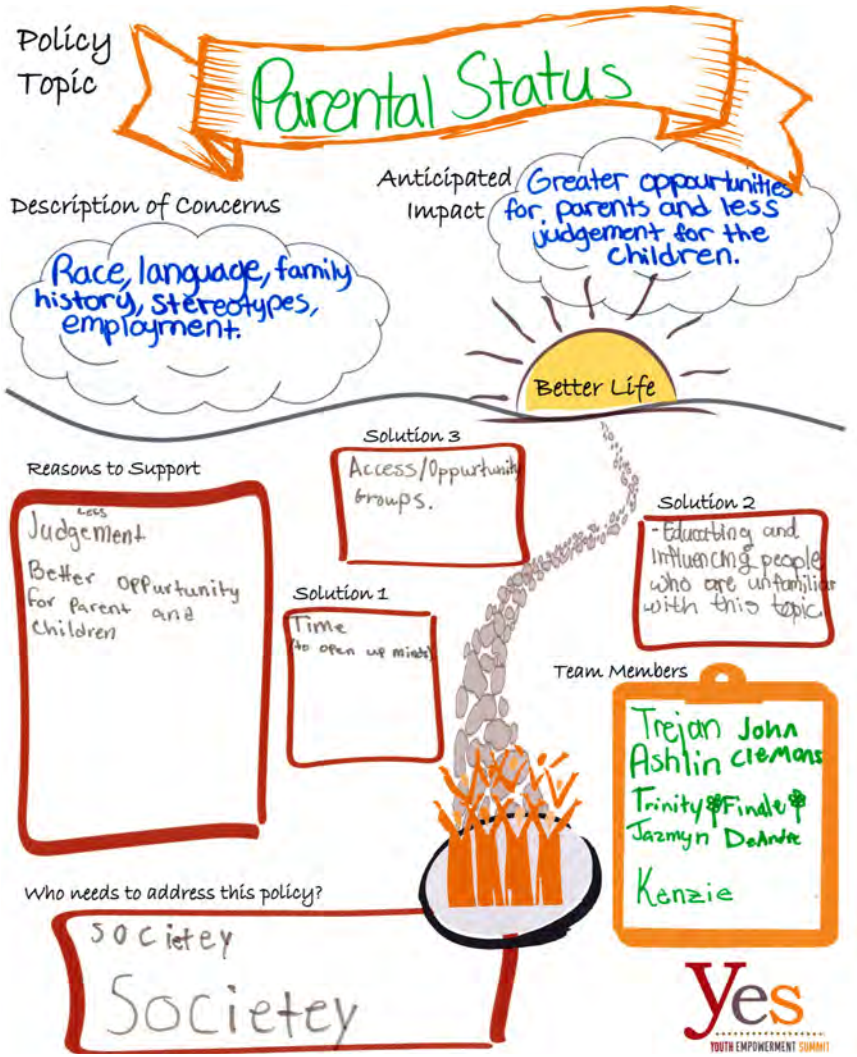 Policy
Topic
Parental Status
Description of Concerns
Race, language, family
history, stereotypes,
employment.
Anticipated
Impact
Greater oppourtunities
for parents and less
judgement for the
children.
Better Life
Reasons to Support
Less
Judgement
Better oppurtunity
for parent and
children
Solution 3
Access/Oppurtunity
Groups.
Solution 2
-Educating and
influencing people
who are unfamiliar
with this topic
Solution 1
Time
(to open up minds)
Team Members
Trejan John
Ashlin Clemons
Trinity Finale
Jazmyn DeAndre
Kenzie
Who needs to address this policy?
societey
Societey
yes
YOUTH EMPOWERMENT SUMMIT